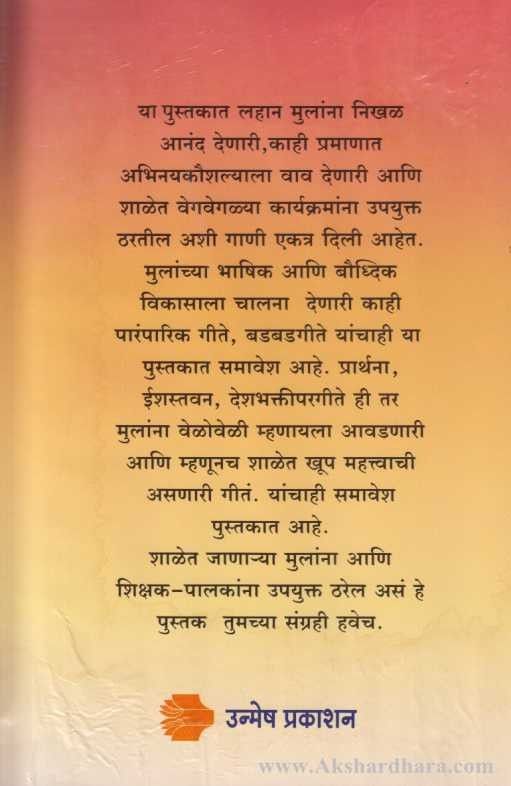 या पुस्तकात लहान मुलांना निखळ
आनंद देणारी,काही प्रमाणात
अभिनयकौशल्याला वाव देणारी आणि
शाळेत वेगवेगळ्या कार्यक्रमांना उपयुक्त
ठरतील अशी गाणी एकत्र दिली आहेत.
मुलांच्या भाषिक आणि बौध्दिक
विकासाला चालना देणारी काही
पारंपारिक गीते, बडबडगीते यांचाही या
पुस्तकात समावेश आहे. प्रार्थना,
ईशस्तवन, देशभक्तीपरगीते ही तर
मुलांना वेळोवेळी म्हणायला आवडणारी
आणि म्हणूनच शाळेत खूप महत्त्वाची
असणारी गीतं. यांचाही समावेश
पुस्तकात आहे.
शाळेत जाणाऱ्या मुलांना आणि
शिक्षक–पालकांना उपयुक्त ठरेल असं हे
पुस्तक तुमच्या संग्रही हवेच.
उन्मेष प्रकाशन
www.Akshardhara.com